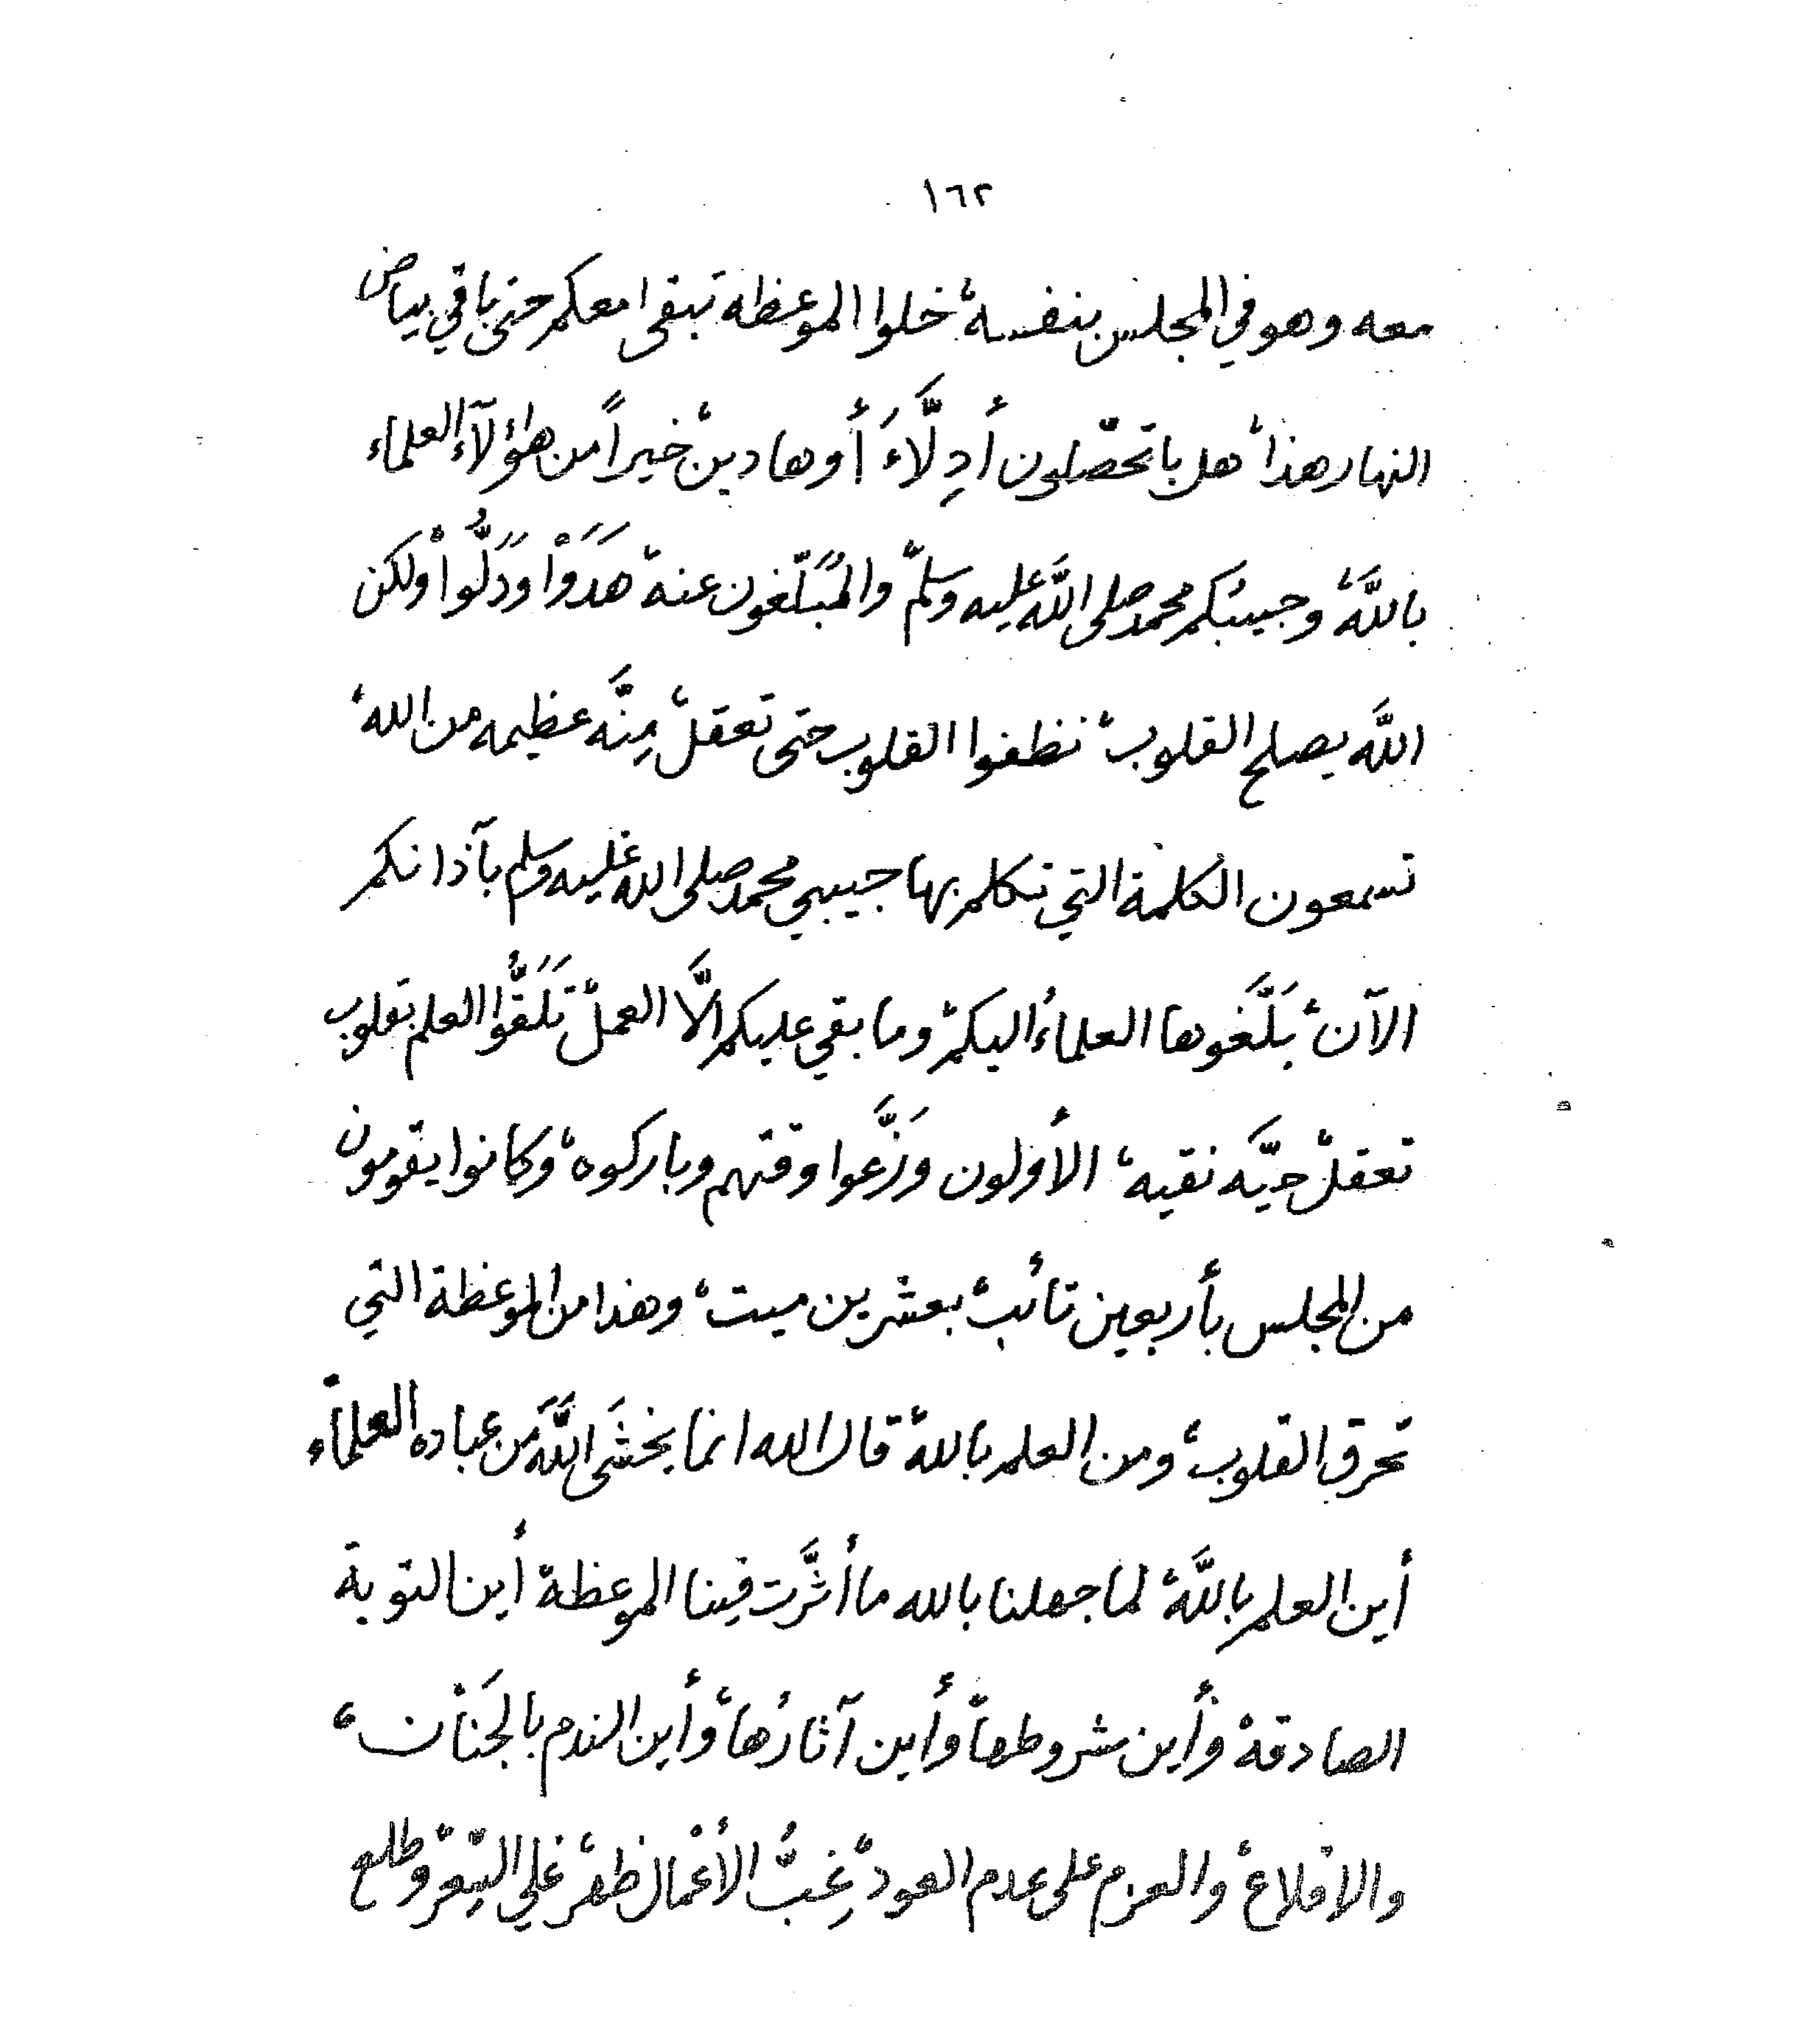 ١٦٢
معه وهو في المجلس بنفسه، خلوا الموعظه تبقى معكم حتى باقي بياض
النهار هذا، هل با تحصّلون أَدِلَّاءَ أوهادين، خيراً من هؤلآء العلماء
باللَّه، وحبيبكم محمد صلى اللَّه عليه وسلّم، والمُبَلّغون عنه، هَدَوْا ودَلُّوا، ولكن
اللَّه يصلح القلوب، نظفوا القلوب حتى تعقل، مِنَّه عظيمه من الله،
تسمعون الكلمة التي تكلم بها حبيبي محمد صلى الله عليه وسلم بآذانكم
الآن، بَلَّغوها العلماءُ اليكم، وما بقي عليكم الَّا العمل، تَلَقَّوُا العلم بقلوب
تعقل، حيَّه نقيه، الأولون وَزَّعوا وقتهم وباركوه، وكانوا يقومون
من المجلس بأربعين تائب، بعشرين ميت، وهذا من الموعظة التي
تحرق القلوب، ومن العلم بالله، قال الله انما يخشَى اللَّهَ من عباده العلماء
أين العلم باللَّه، لما جهلنا بالله ما أثَّرت فينا الموعظة أين التوبة
الصادقه، وأين شروطها، وأين آثارُها، وأين الندم بالجَنَان،
والاقلاع، والعزم على عدم العود، غِبُّ الأعْمال ظهر، علي التِّعِرّ وطلع